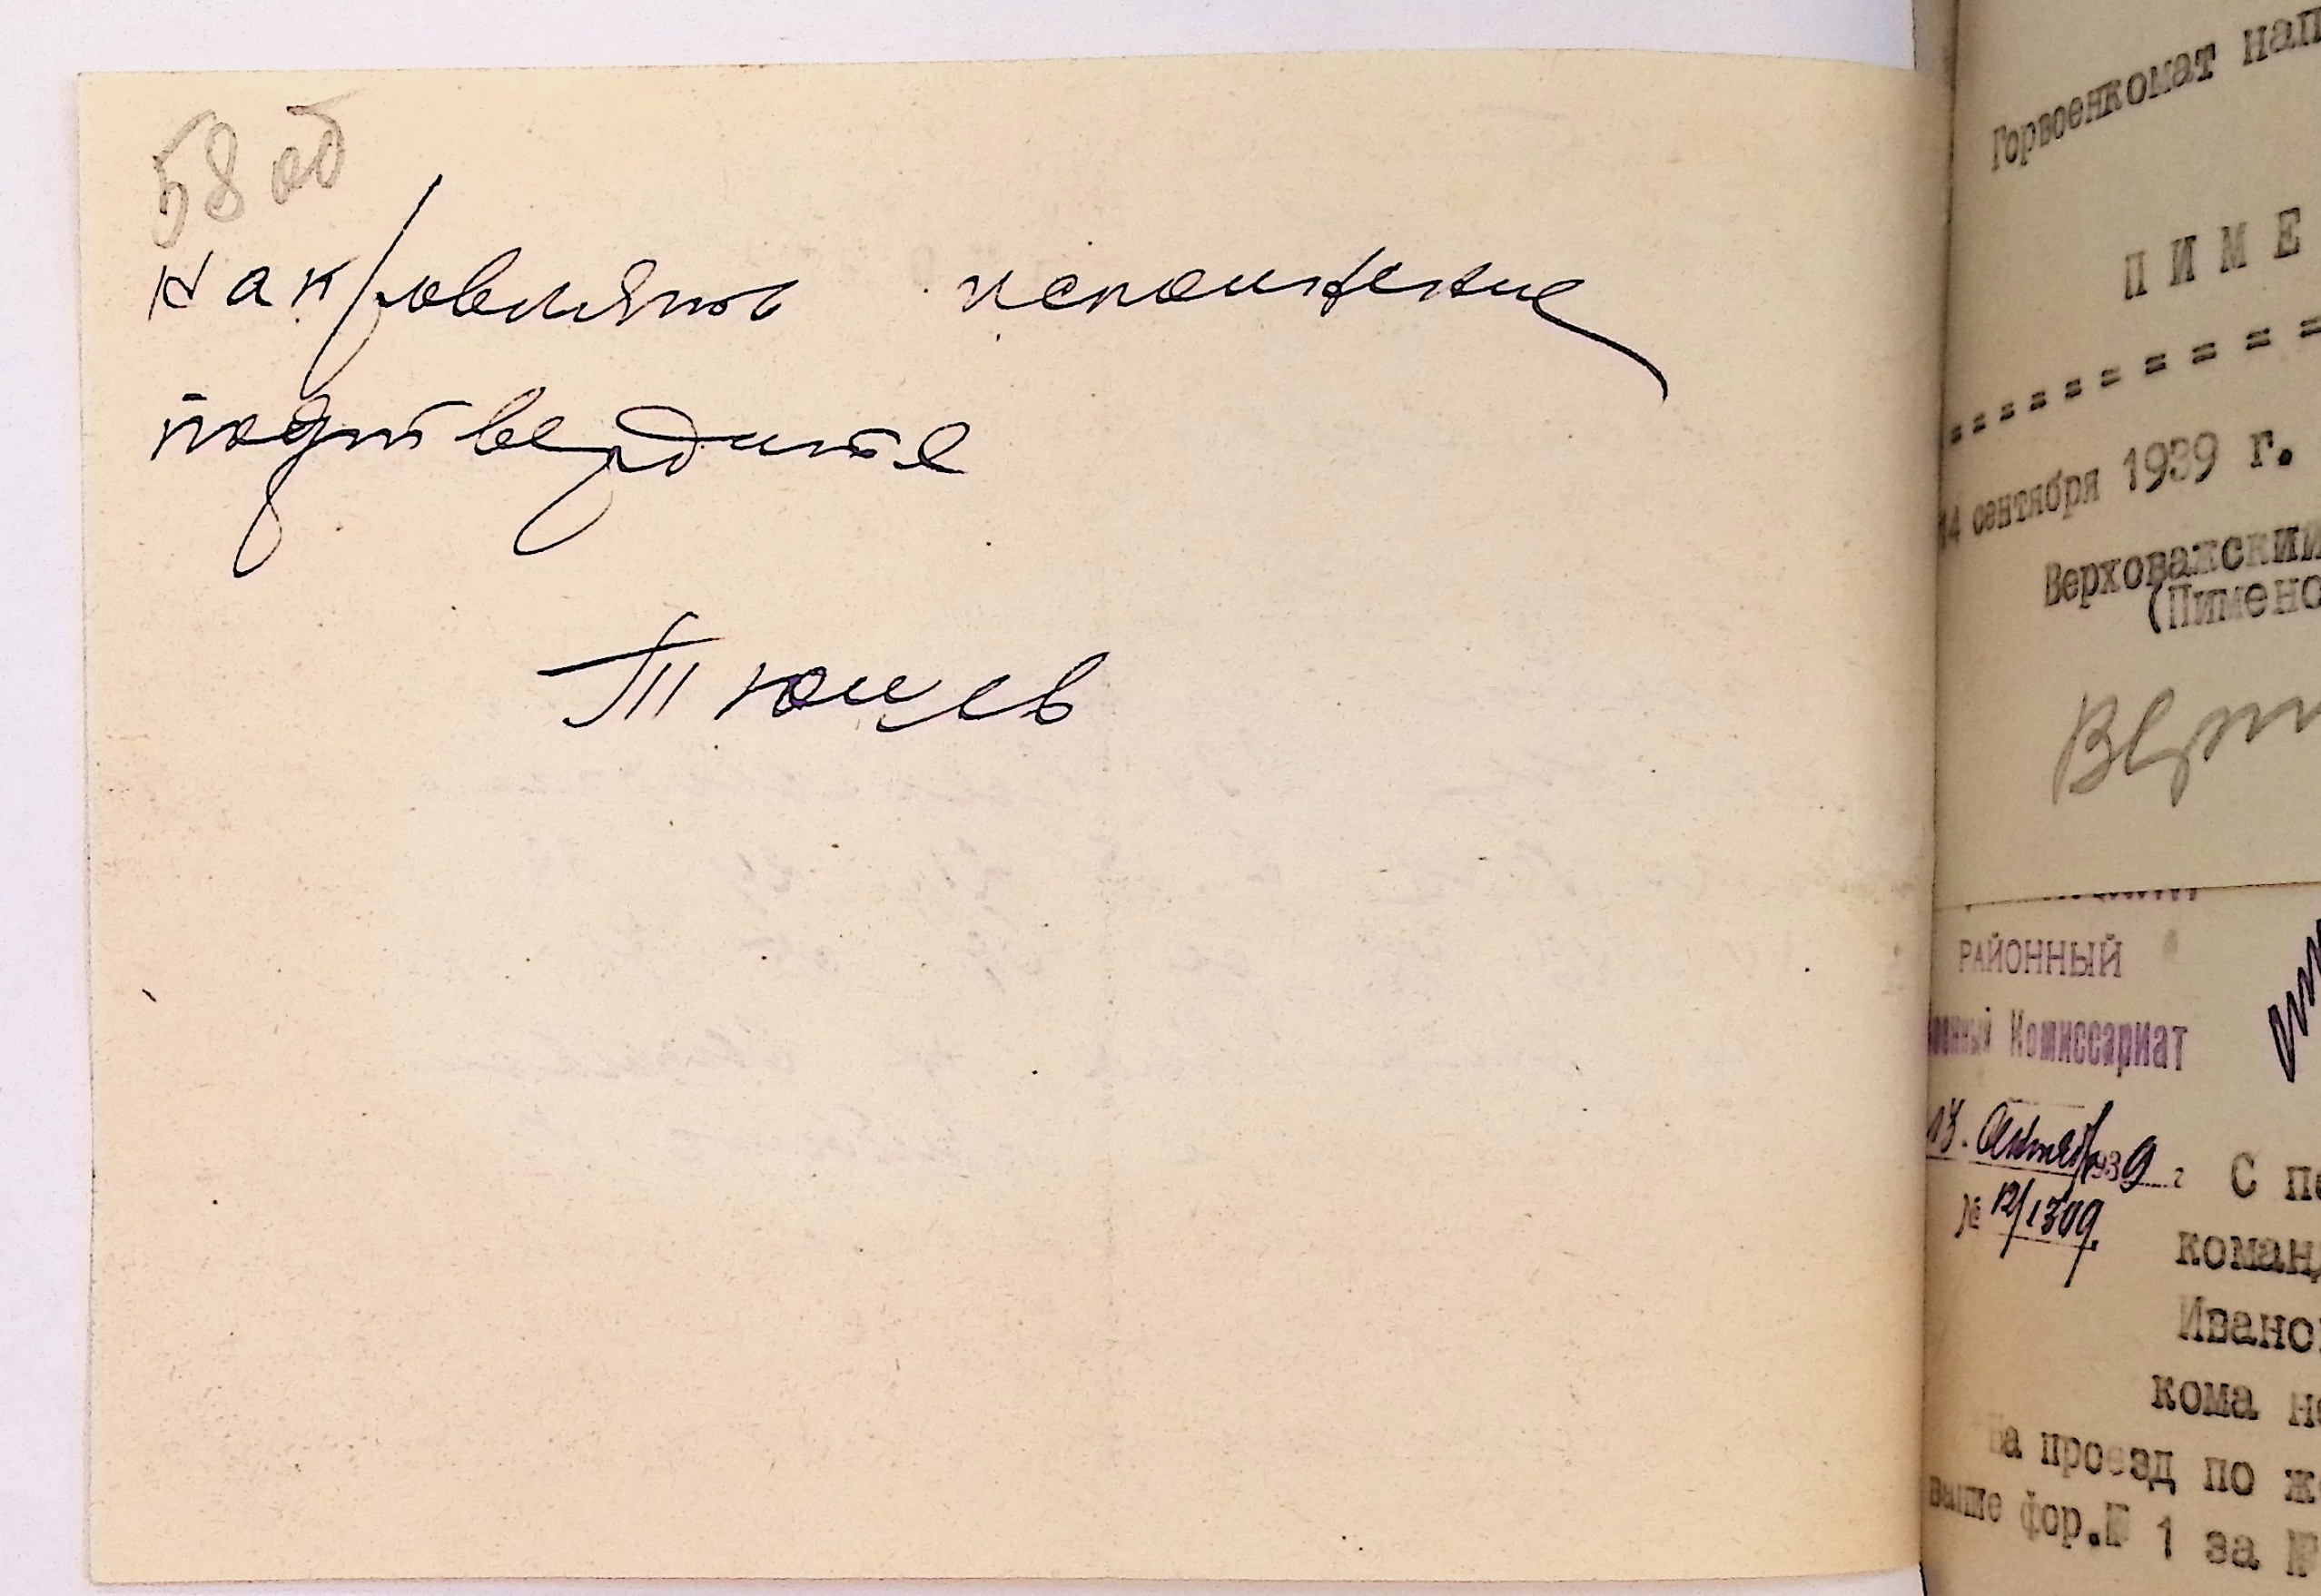 58 об
направлять исполнение
подтвердите
Тюшев
Горвоенкомат нап
П И М Е
= = = = = = = = =
14 сентября 1939 г.
Верховажский
(Пимено
РАЙОННЫЙ
Комиссариат
Октября 1939 г
№ 12/1309.
С по
команд
Иванов
кома не
На проезд по же
выше фор.№ 1 за №